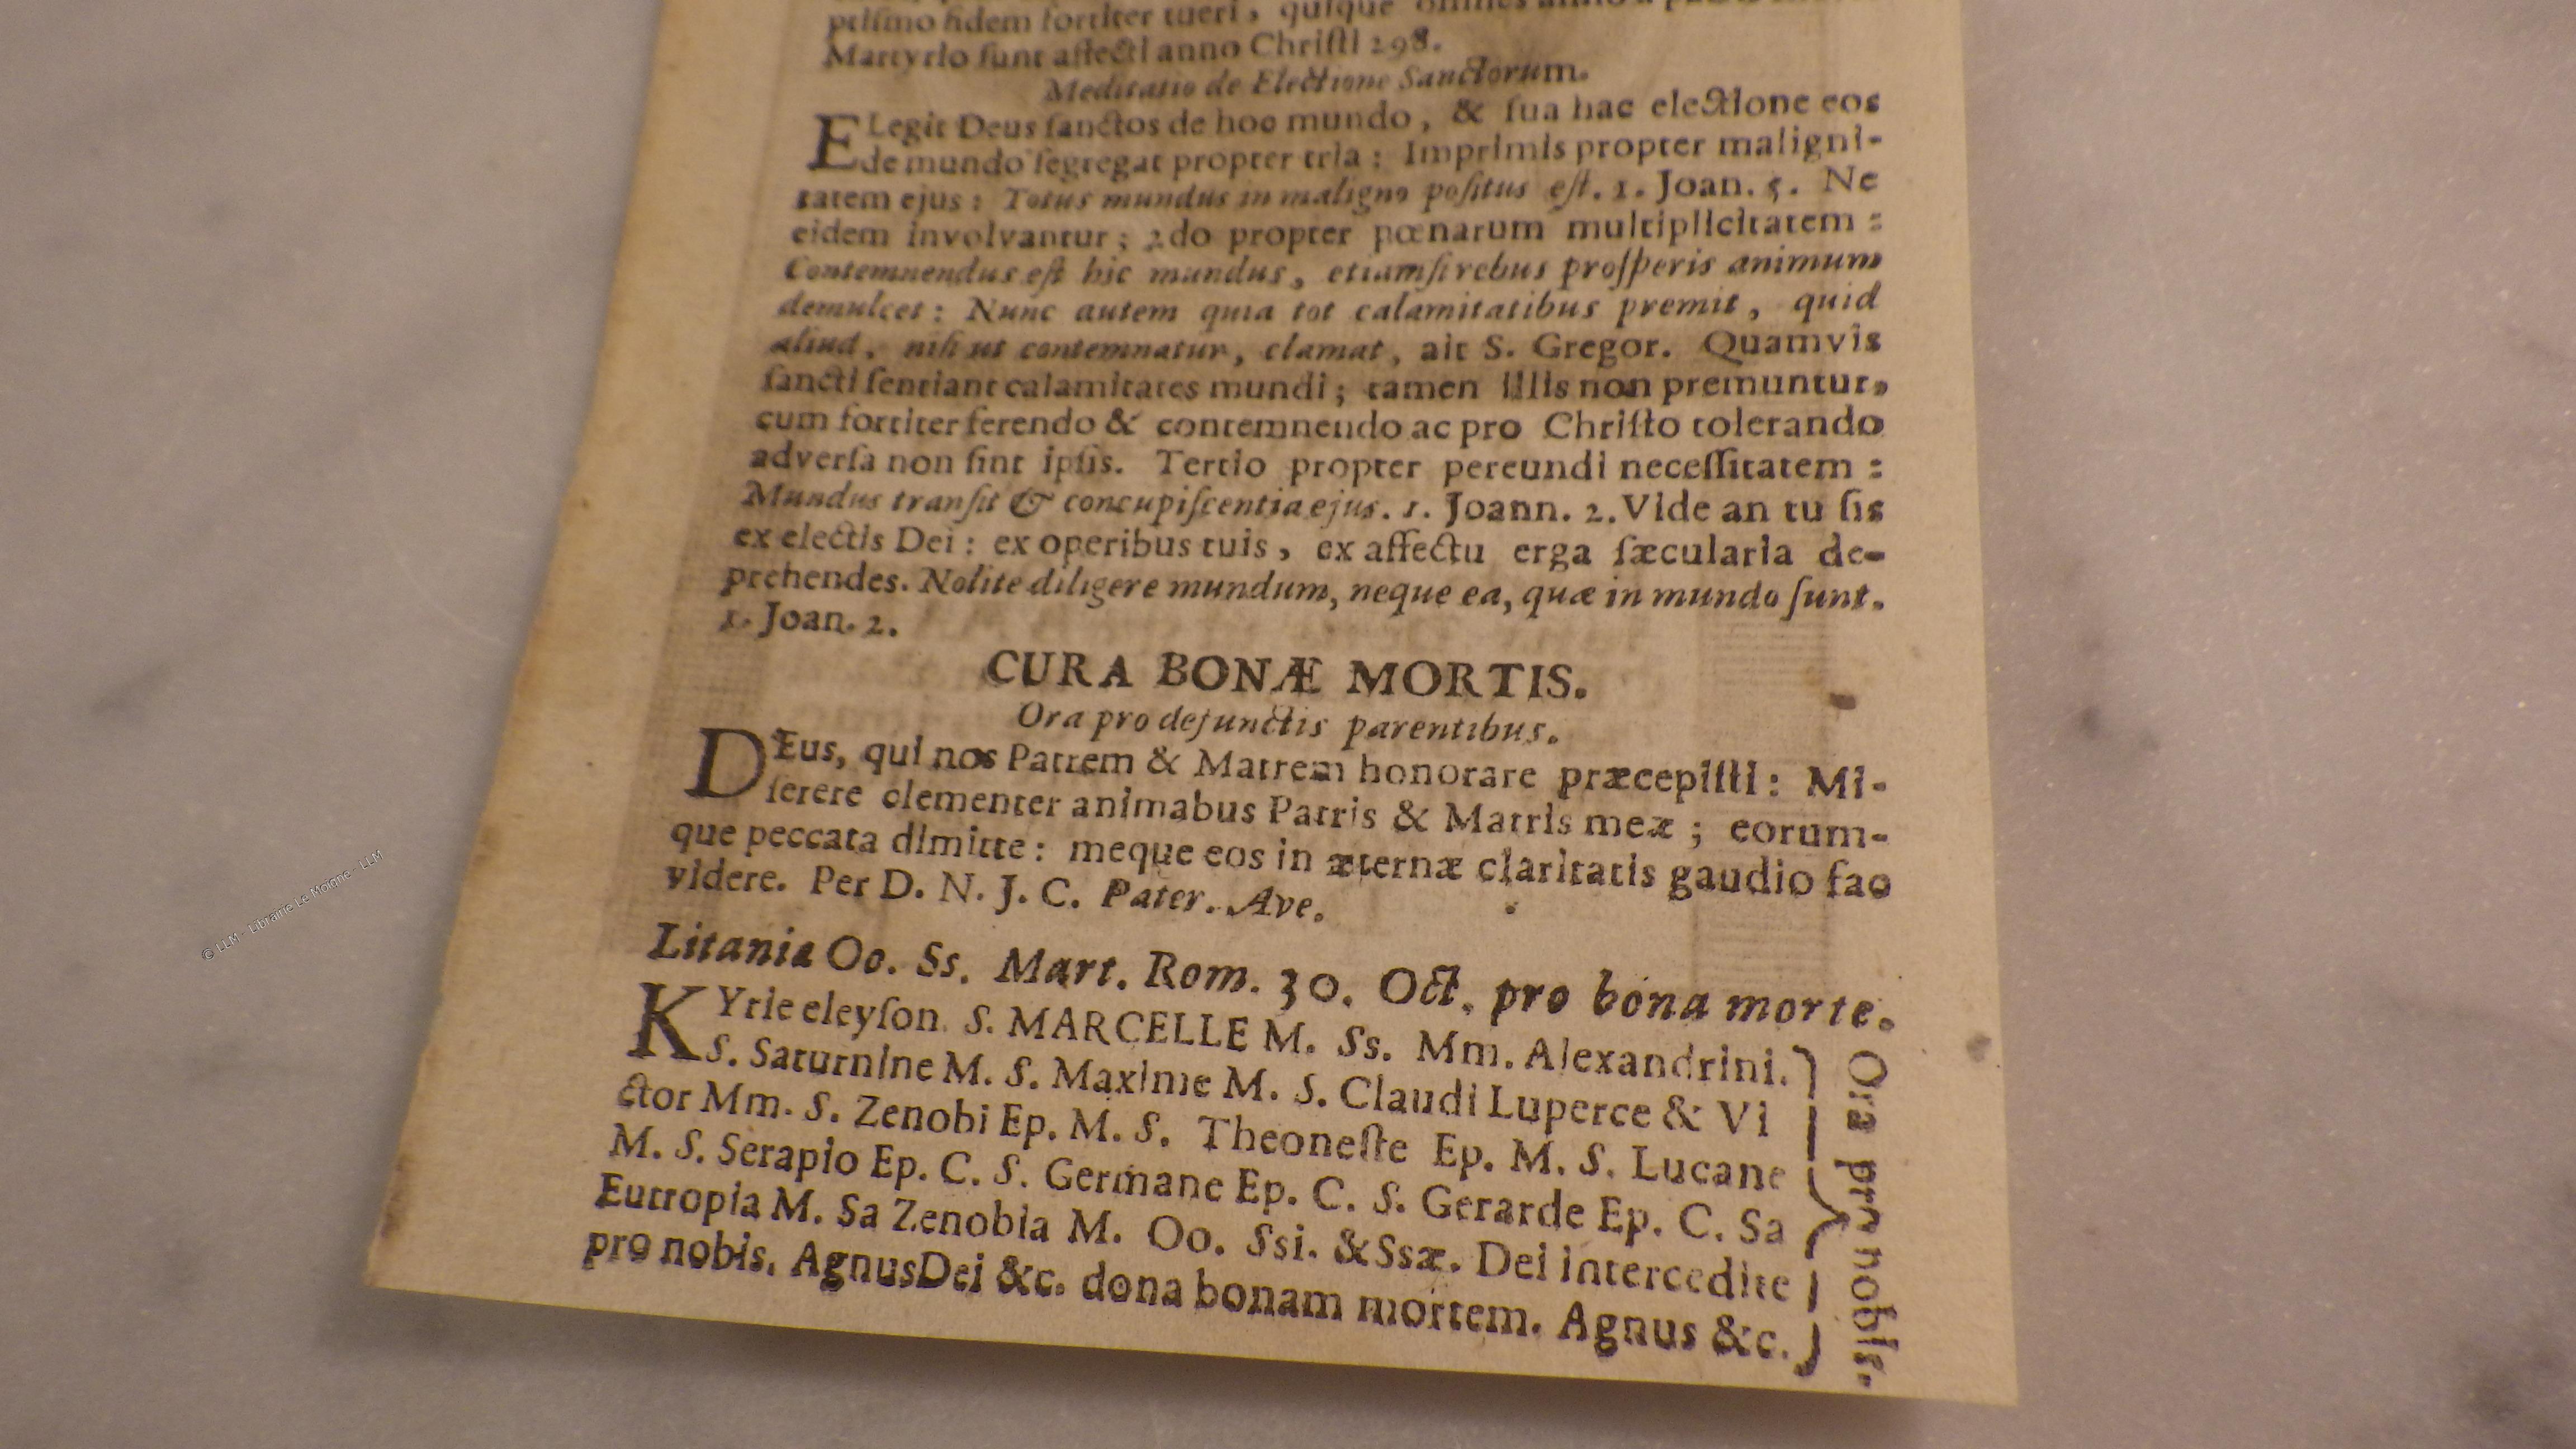 ptiſmo fidem fortiter tueri, quique omnes anno a
Martyrio ſunt affecti anno Chriſti 298.
Meditatio de Electione Sanctorum.
ELegit Deus ſanctos de hoc mundo, & ſua hac electione eos
de mundo ſegregat propter tria: Imprimis propter maligni-
tatem ejus: Totus mundus in maligno poſitus eſt. 1. Joan. 5. Ne
eidem involvantur; 2do propter pœnarum multiplicitatem:
Contemnendus eſt hic mundus, etiamſi rebus proſperis animum
demulcet: Nunc autem quia tot calamitatibus premit, quid
aliud, niſi ut contemnatur, clamat, ait S. Gregor. Quamvis
ſancti ſentiant calamitates mundi; tamen illis non premuntur,
cum fortiter ferendo & contemnendo ac pro Chriſto tolerando
adverſa non ſint ipſis. Tertio propter pereundi neceſſitatem:
Mundus tranſit & concupiſcentia ejus. 1. Joann. 2. Vide an tu ſis
ex electis Dei: ex operibus tuis, ex affectu erga ſæcularia de-
prehendes. Nolite diligere mundum, neque ea, quæ in mundo ſunt.
1. Joan. 2.
CURA BONÆ MORTIS.
Ora pro defunctis parentibus.
DEus, qui nos Patrem & Matrem honorare præcepiſti: Mi-
ſerere clementer animabus Patris & Matris meæ; eorum-
que peccata dimitte: meque eos in æternæ claritatis gaudio fac
videre. Per D. N. J. C. Pater. Ave.
Litania Oo. Ss. Mart. Rom. 30. Oct. pro bona morte.
KYrie eleyſon. S. MARCELLE M. Ss. Mm. Alexandrini.
S. Saturnine M. S. Maxime M. S. Claudi Luperce & Vi
ctor Mm. S. Zenobi Ep. M. S. Theoneſte Ep. M. S. Lucane
M. S. Serapio Ep. C. S. Germane Ep. C. S. Gerarde Ep. C. Sa
Eutropia M. Sa Zenobia M. Oo. Ssi. & Ssæ. Dei intercedite
pro nobis. Agnus Dei &c. dona bonam mortem. Agnus &c.
Ora pro nobis.
© LLM - Librairie Le Moigne - LLM